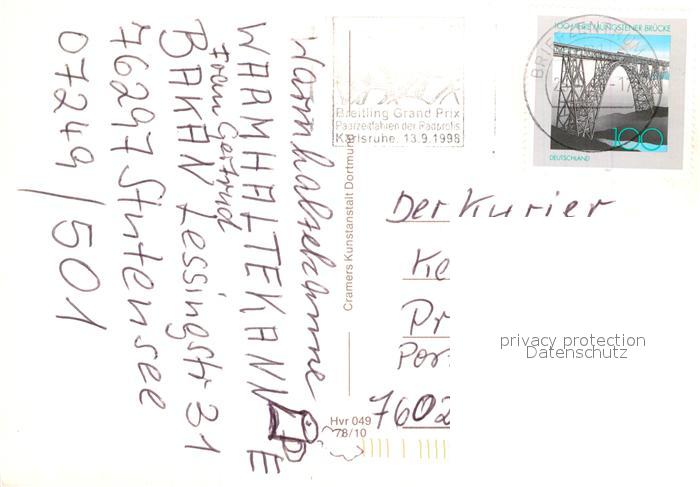 Warmhaltekanne
WARMHALTEKANNE
Frau Gertrud
BAKAN Lessingstr 31
76297 Stutensee
07249/501
Breitling Grand Prix
Paarzeitfahren der Radprofis
Karlsruhe, 13.9.1998
100 JAHRE MÜNGSTENER BRÜCKE
100
DEUTSCHLAND
Cramers Kunstanstalt Dortmund
Der Kurier
Ke
Pr
Por
7602
Hvr 049
78/10
privacy protection
Datenschutz